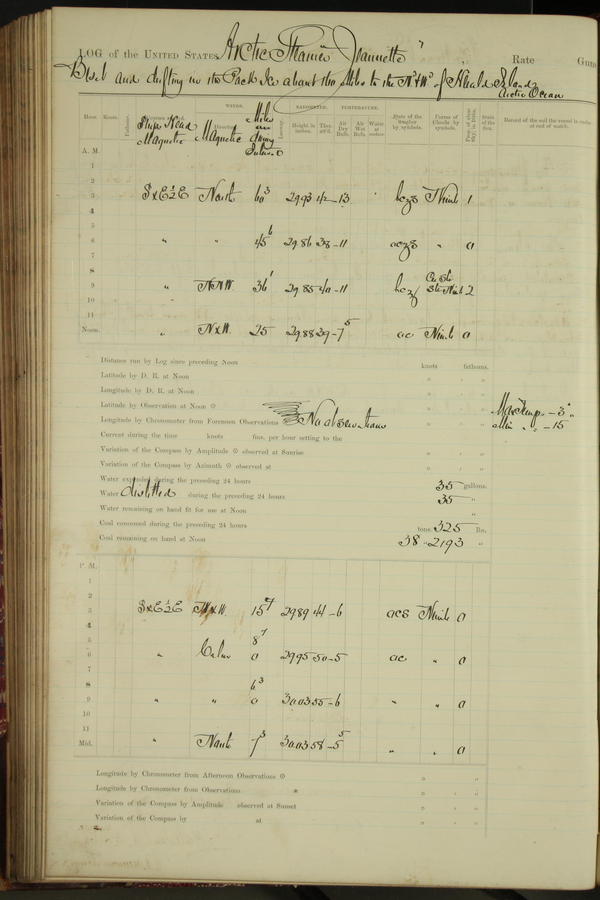 LOG of the UNITED STATES Arctic Steamer "Jeannette" , Rate Guns
Beset and drifting in the Pack Ice about 160 Miles to the Nd & Wd of Herald Island
Arctic Ocean
Hour. Knots. Fathoms. Ships Head Magnetic WINDS. Direction Magnetic Miles Leeway. BAROMETER. Height in inches. Ther. att'd. TEMPERATURE. Air Dry Bulb. Air Wet Bulb. Water at surface. State of the Weather by symbols. Forms of Clouds by symbols. State of the Sea. Record of the sail the vessel is under at end of watch.
A. M.
1
2
3 S x E ½ E North 60 3 29.93 42 -13 bczs Nimb 1
4
5
6 " " 45 6 29.86 38 -11 aczs " 0
7
8
9 " NNW 36 1 29.85 40 -11 bcz Cir St. Str Nimb 2
10
11
Noon. " N x W. 25 29.88 39 -7 5 ac Nimb 0
Distance run by Log since preceding Noon knots fathoms.
Latitude by D. R. at Noon ° ' "
Longitude by D. R. at Noon ° ' "
Latitude by Observation at Noon ° ' "
Longitude by Chronometer from Forenoon Observations No observations
Max Temp. -3° "
Min " " -15
Current during the time knots fms. per hour setting to the
Variation of the Compass by Amplitude observed at Sunrise
Variation of the Compass by Azimuth observed at
Water expended during the preceding 24 hours 35 gallons.
Water distilled during the preceding 24 hours 35 "
Water remaining on hand fit for use at Noon "
Coal consumed during the preceding 24 hours tons. 325 lbs.
Coal remaining on hand at Noon 38 " 2193 "
P. M.
1
2
3 S x E ½ E N x W. 15 7 29.89 44 -6 acs Nimb 0
4
5 8 7
6 " Calm 0 29.95 50 -5 ac " 0
7
8 6 3
9 " " 0 30.03 55 -6 " " 0
10
11
Mid. " North 7 3 30.03 58 -5 5 " " 0
Longitude by Chronometer from Afternoon Observations
Longitude by Chronometer from Observations
Variation of the Compass by Amplitude observed at Sunset
Variation of the Compass by at